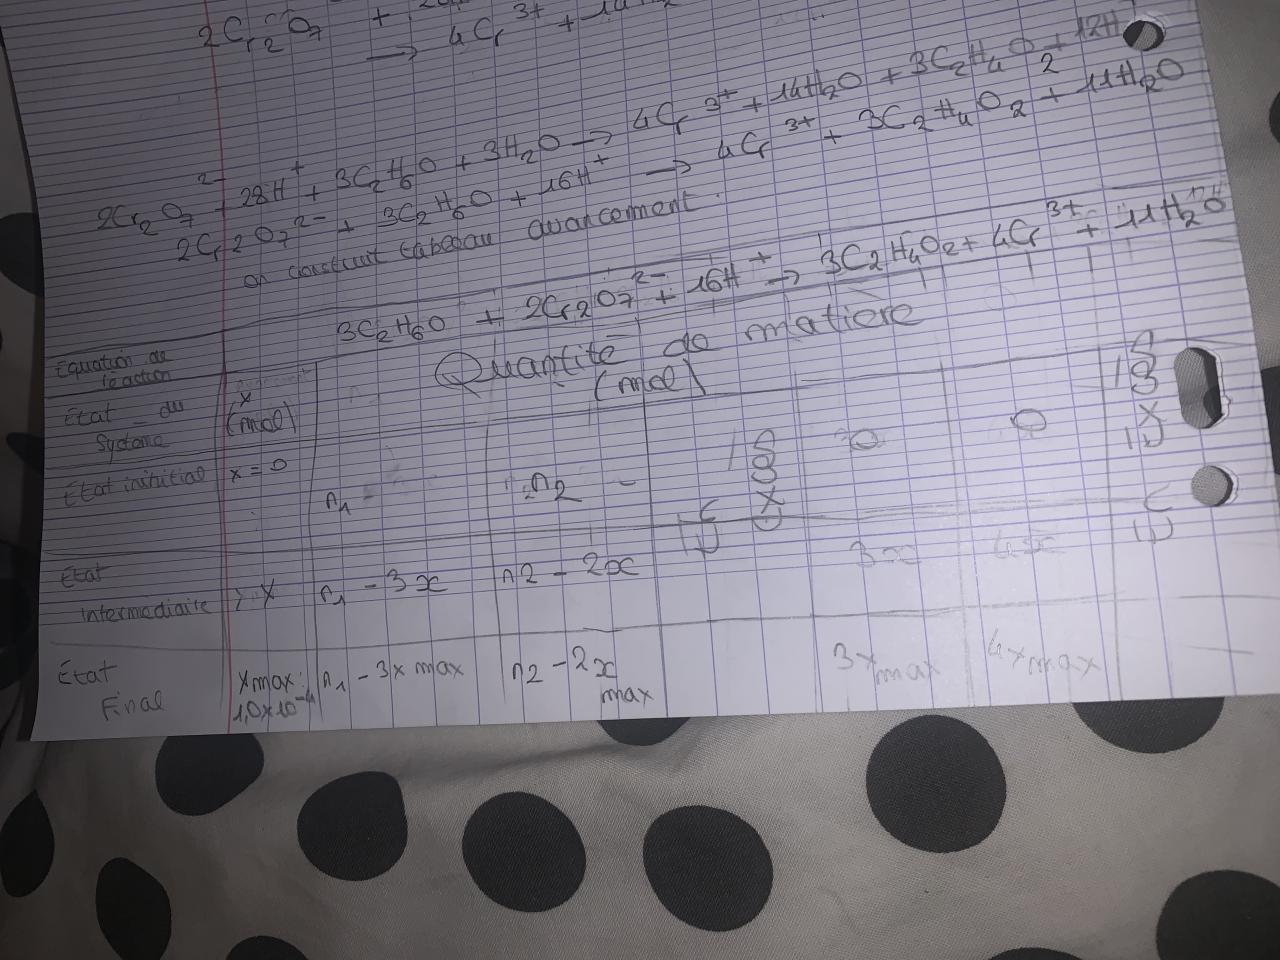 2Cr2O7 +
→ 4Cr3+ +
2Cr2O7 2- + 28H+ + 3C2H6O + 3H2O → 4Cr3+ + 14H2O + 3C2H4O2 + 12H
2Cr2O7 2- + 3C2H6O + 16H+ → 4Cr3+ + 3C2H4O2 + 11H2O
on construit tableau avancement.
Equation de réaction 3C2H6O + 2Cr2O7 2- + 16H+ → 3C2H4O2 + 4Cr3+ + 11H2O
Etat du Système x (mol) Quantité de matière (mol)
Etat inihitial x = 0 n1 n2 EXCES 0 0 EXCES
Etat intermédiaire > x n1 - 3x n2 - 2x 3x 4x
Etat Final xmax: 1,0x10-4 n1 - 3x max n2 - 2x max 3xmax 4xmax